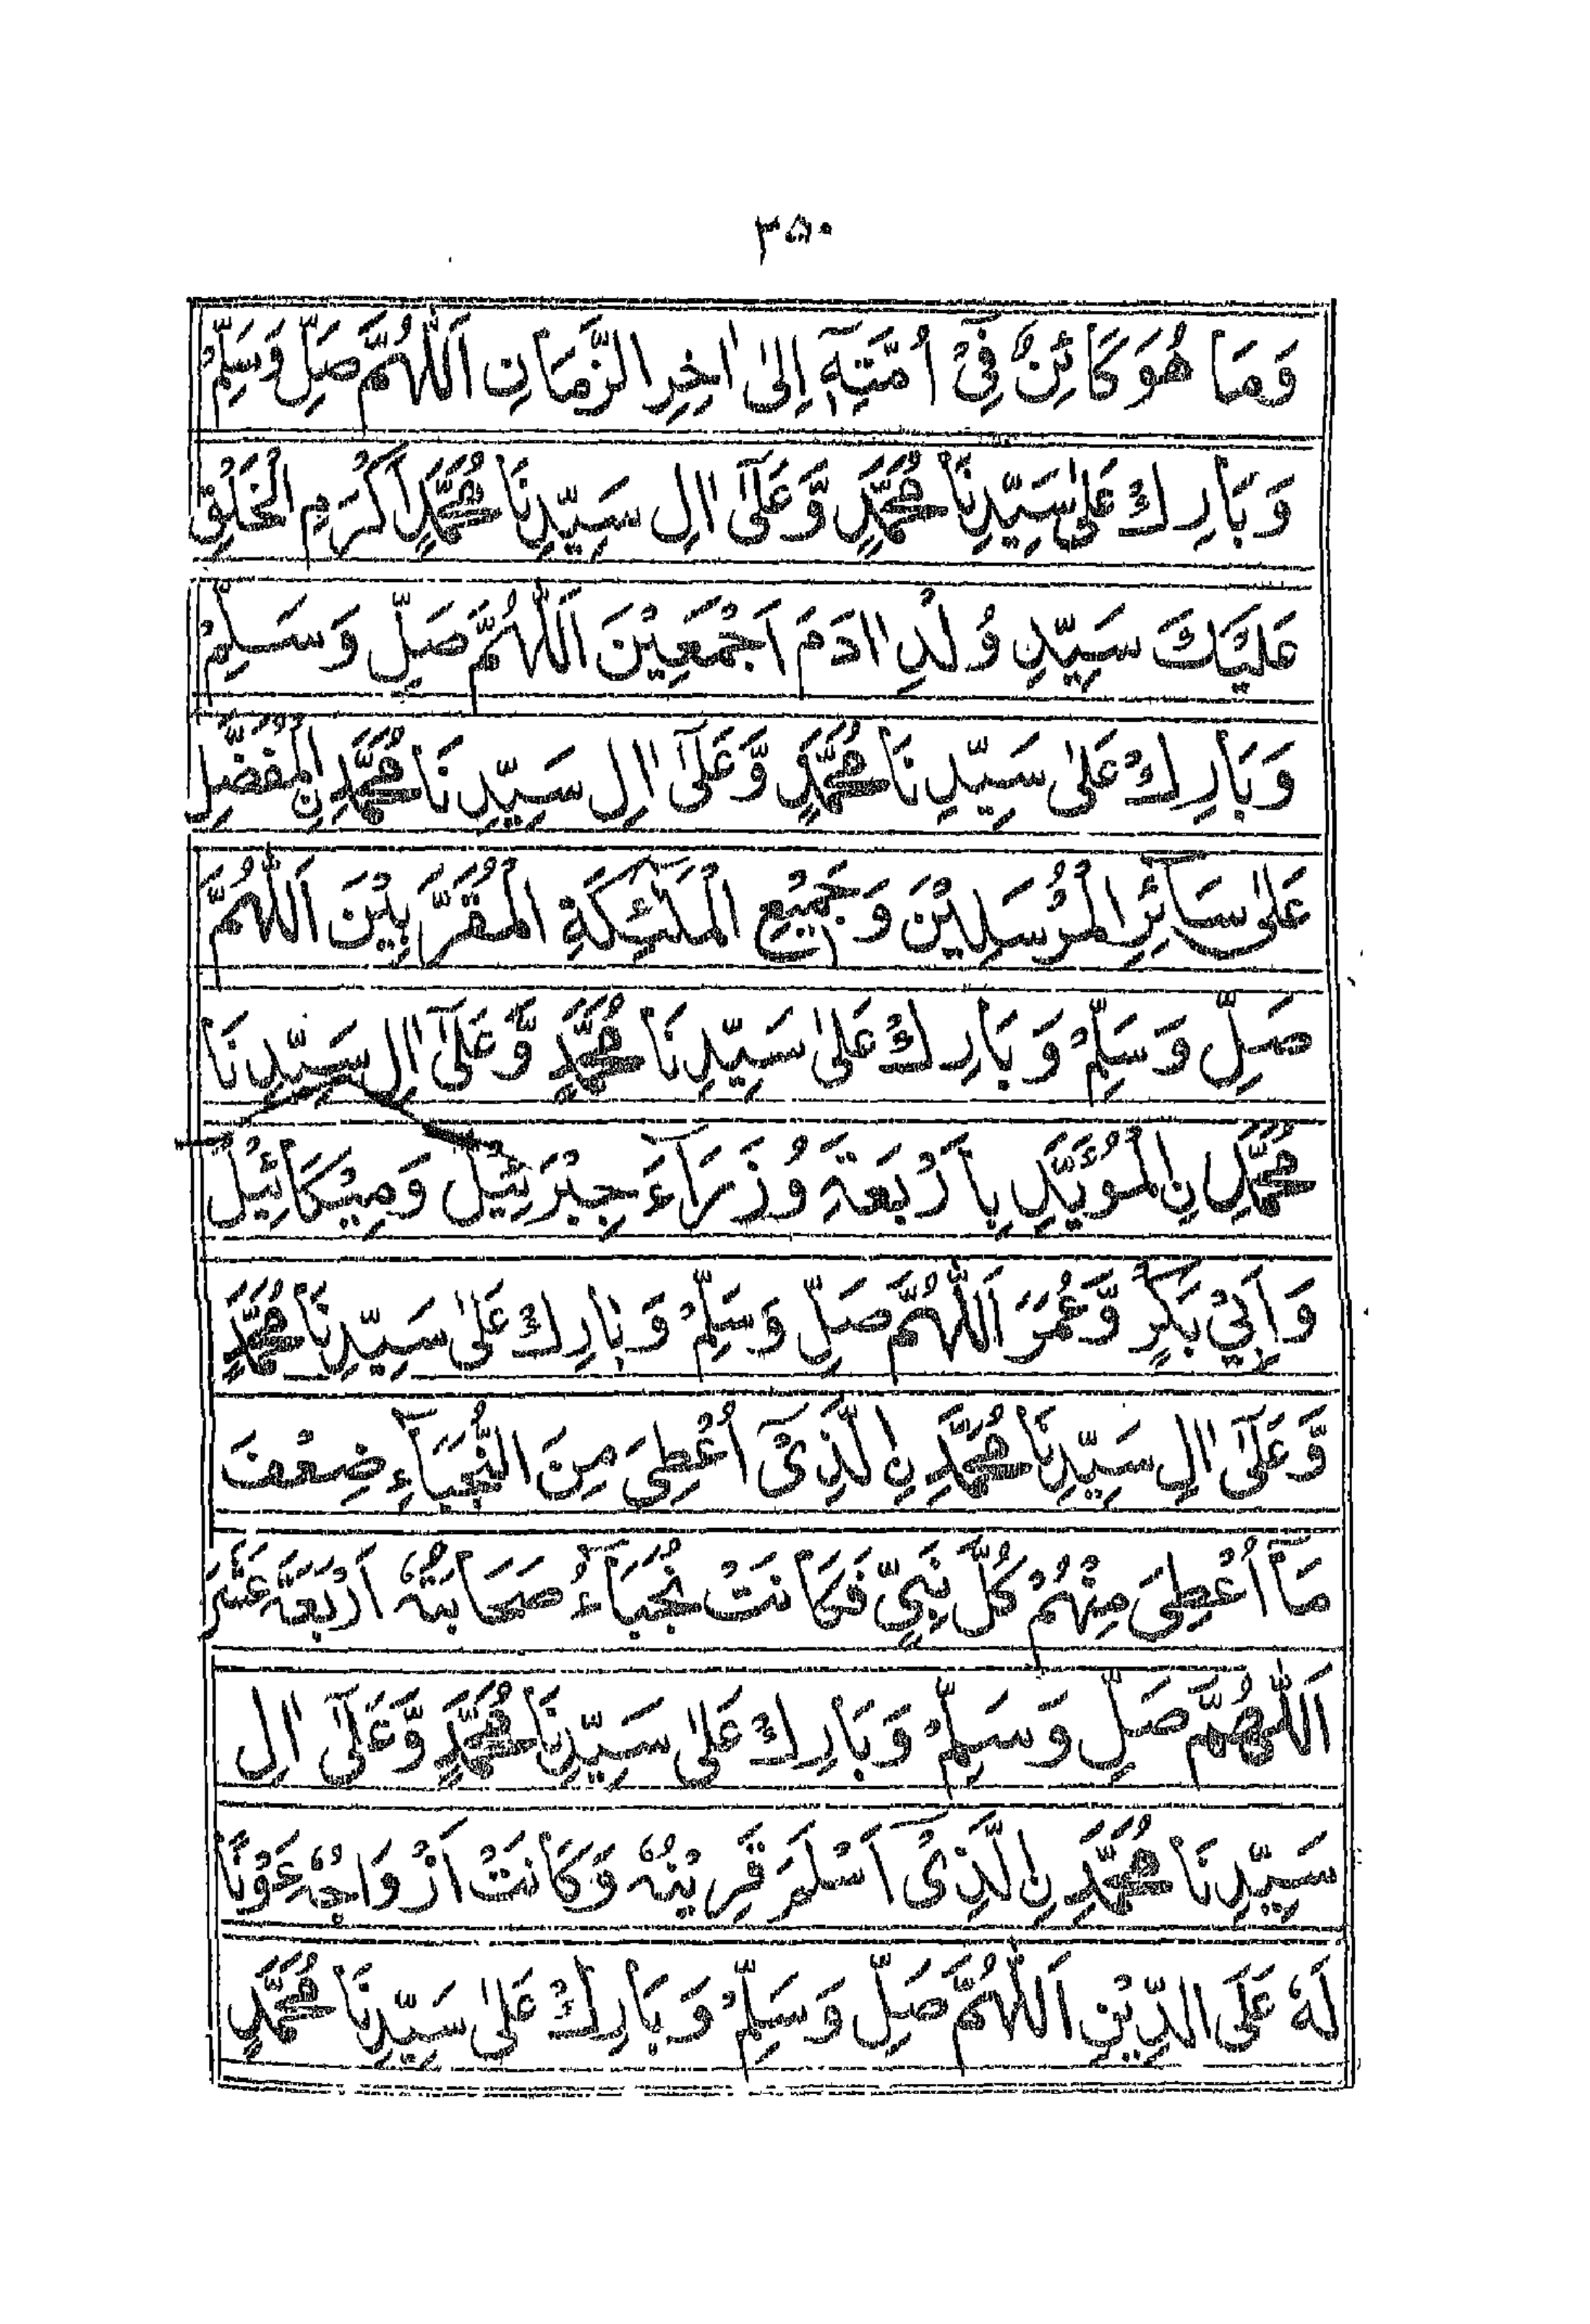 ۳۵۰
وَمَا هُوَ كَائِنٌ فِيْٓ اُمَّتِهٖٓ اِلىٰٓ اٰخِرِ الزَّمَانِ اَللّٰهُمَّ صَلِّ وَسَلِّمْ
وَبَارِكْ عَلىٰ سَيِّدِنَا مُحَمَّدٍ وَّعَلىٰٓ اٰلِ سَيِّدِنَا مُحَمَّدٍ اَكْرَمِ الْخَلْقِ
عَلَيْكَ سَيِّدِ وُلْدِ اٰدَمَ اَجْمَعِيْنَ اَللّٰهُمَّ صَلِّ وَسَلِّمْ
وَبَارِكْ عَلىٰ سَيِّدِنَا مُحَمَّدٍ وَّعَلىٰٓ اٰلِ سَيِّدِنَا مُحَمَّدِنِ الْمُفَضَّلِ
عَلىٰ سَآئِرِ الْمُرْسَلِيْنَ وَجَمِيْعِ الْمَلٰٓئِكَةِ الْمُقَرَّبِيْنَ اَللّٰهُمَّ
صَلِّ وَسَلِّمْ وَبَارِكْ عَلىٰ سَيِّدِنَا مُحَمَّدٍ وَّعَلىٰٓ اٰلِ سَيِّدِنَا
مُحَمَّدِ نِ الْمُؤَيَّدِ بِاَرْبَعَةِ وُزَرَآءَ جِبْرَئِيْلَ وَمِيْكَائِيْلَ
وَاَبِيْ بَكْرٍ وَّعُمَرَ اَللّٰهُمَّ صَلِّ وَسَلِّمْ وَبَارِكْ عَلىٰ سَيِّدِنَا مُحَمَّدٍ
وَّعَلىٰٓ اٰلِ سَيِّدِنَا مُحَمَّدِ نِ الَّذِيْٓ اُعْطِيَ مِنَ النُّجَبَآءِ ضِعْفَ
مَآ اُعْطِيَ مِنْهُمْ كُلُّ نَبِيٍّ فَكَانَتْ نُجَبَآءُ صَحَابَتِهٖ اَرْبَعَةَ عَشَرَ
اَللّٰهُمَّ صَلِّ وَسَلِّمْ وَبَارِكْ عَلىٰ سَيِّدِنَا مُحَمَّدٍ وَّعَلىٰٓ اٰلِ
سَيِّدِنَا مُحَمَّدِ نِ الَّذِيْٓ اَسْلَمَ قَرِيْنُهٗ وَكَانَتْ اَزْوَاجُهٗ عَوْنًا
لَهٗ عَلَى الدِّيْنِ اَللّٰهُمَّ صَلِّ وَسَلِّمْ وَبَارِكْ عَلىٰ سَيِّدِنَا مُحَمَّدٍ